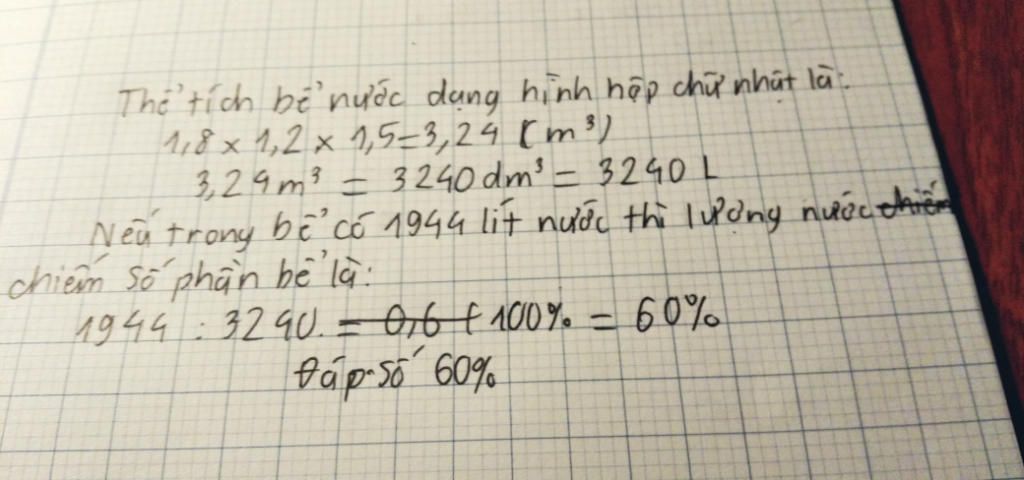 Thể tích bể nước dạng hình hộp chữ nhật là:
1,8 × 1,2 × 1,5 = 3,24 (m³)
3,24 m³ = 3240 dm³ = 3240 L
Nếu trong bể có 1944 lít nước thì lượng nước chiếm
chiếm số phần bể là:
1944 : 3240. = 0,6 ( 100% = 60%
Đáp số 60%